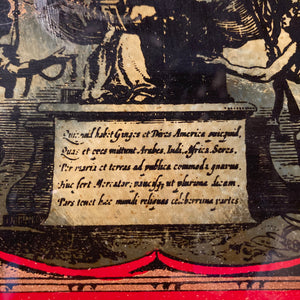 Quicquid habet Ganges et Dives America quicquid,
Quas et opes mittunt Arabes, Indi, Africa, Seres,
Per maria et terras ad publica commoda gnavum
Huc fert Mercator; ut plurima dicam
Pars tenet haec mundi reliquas celeberrima partes